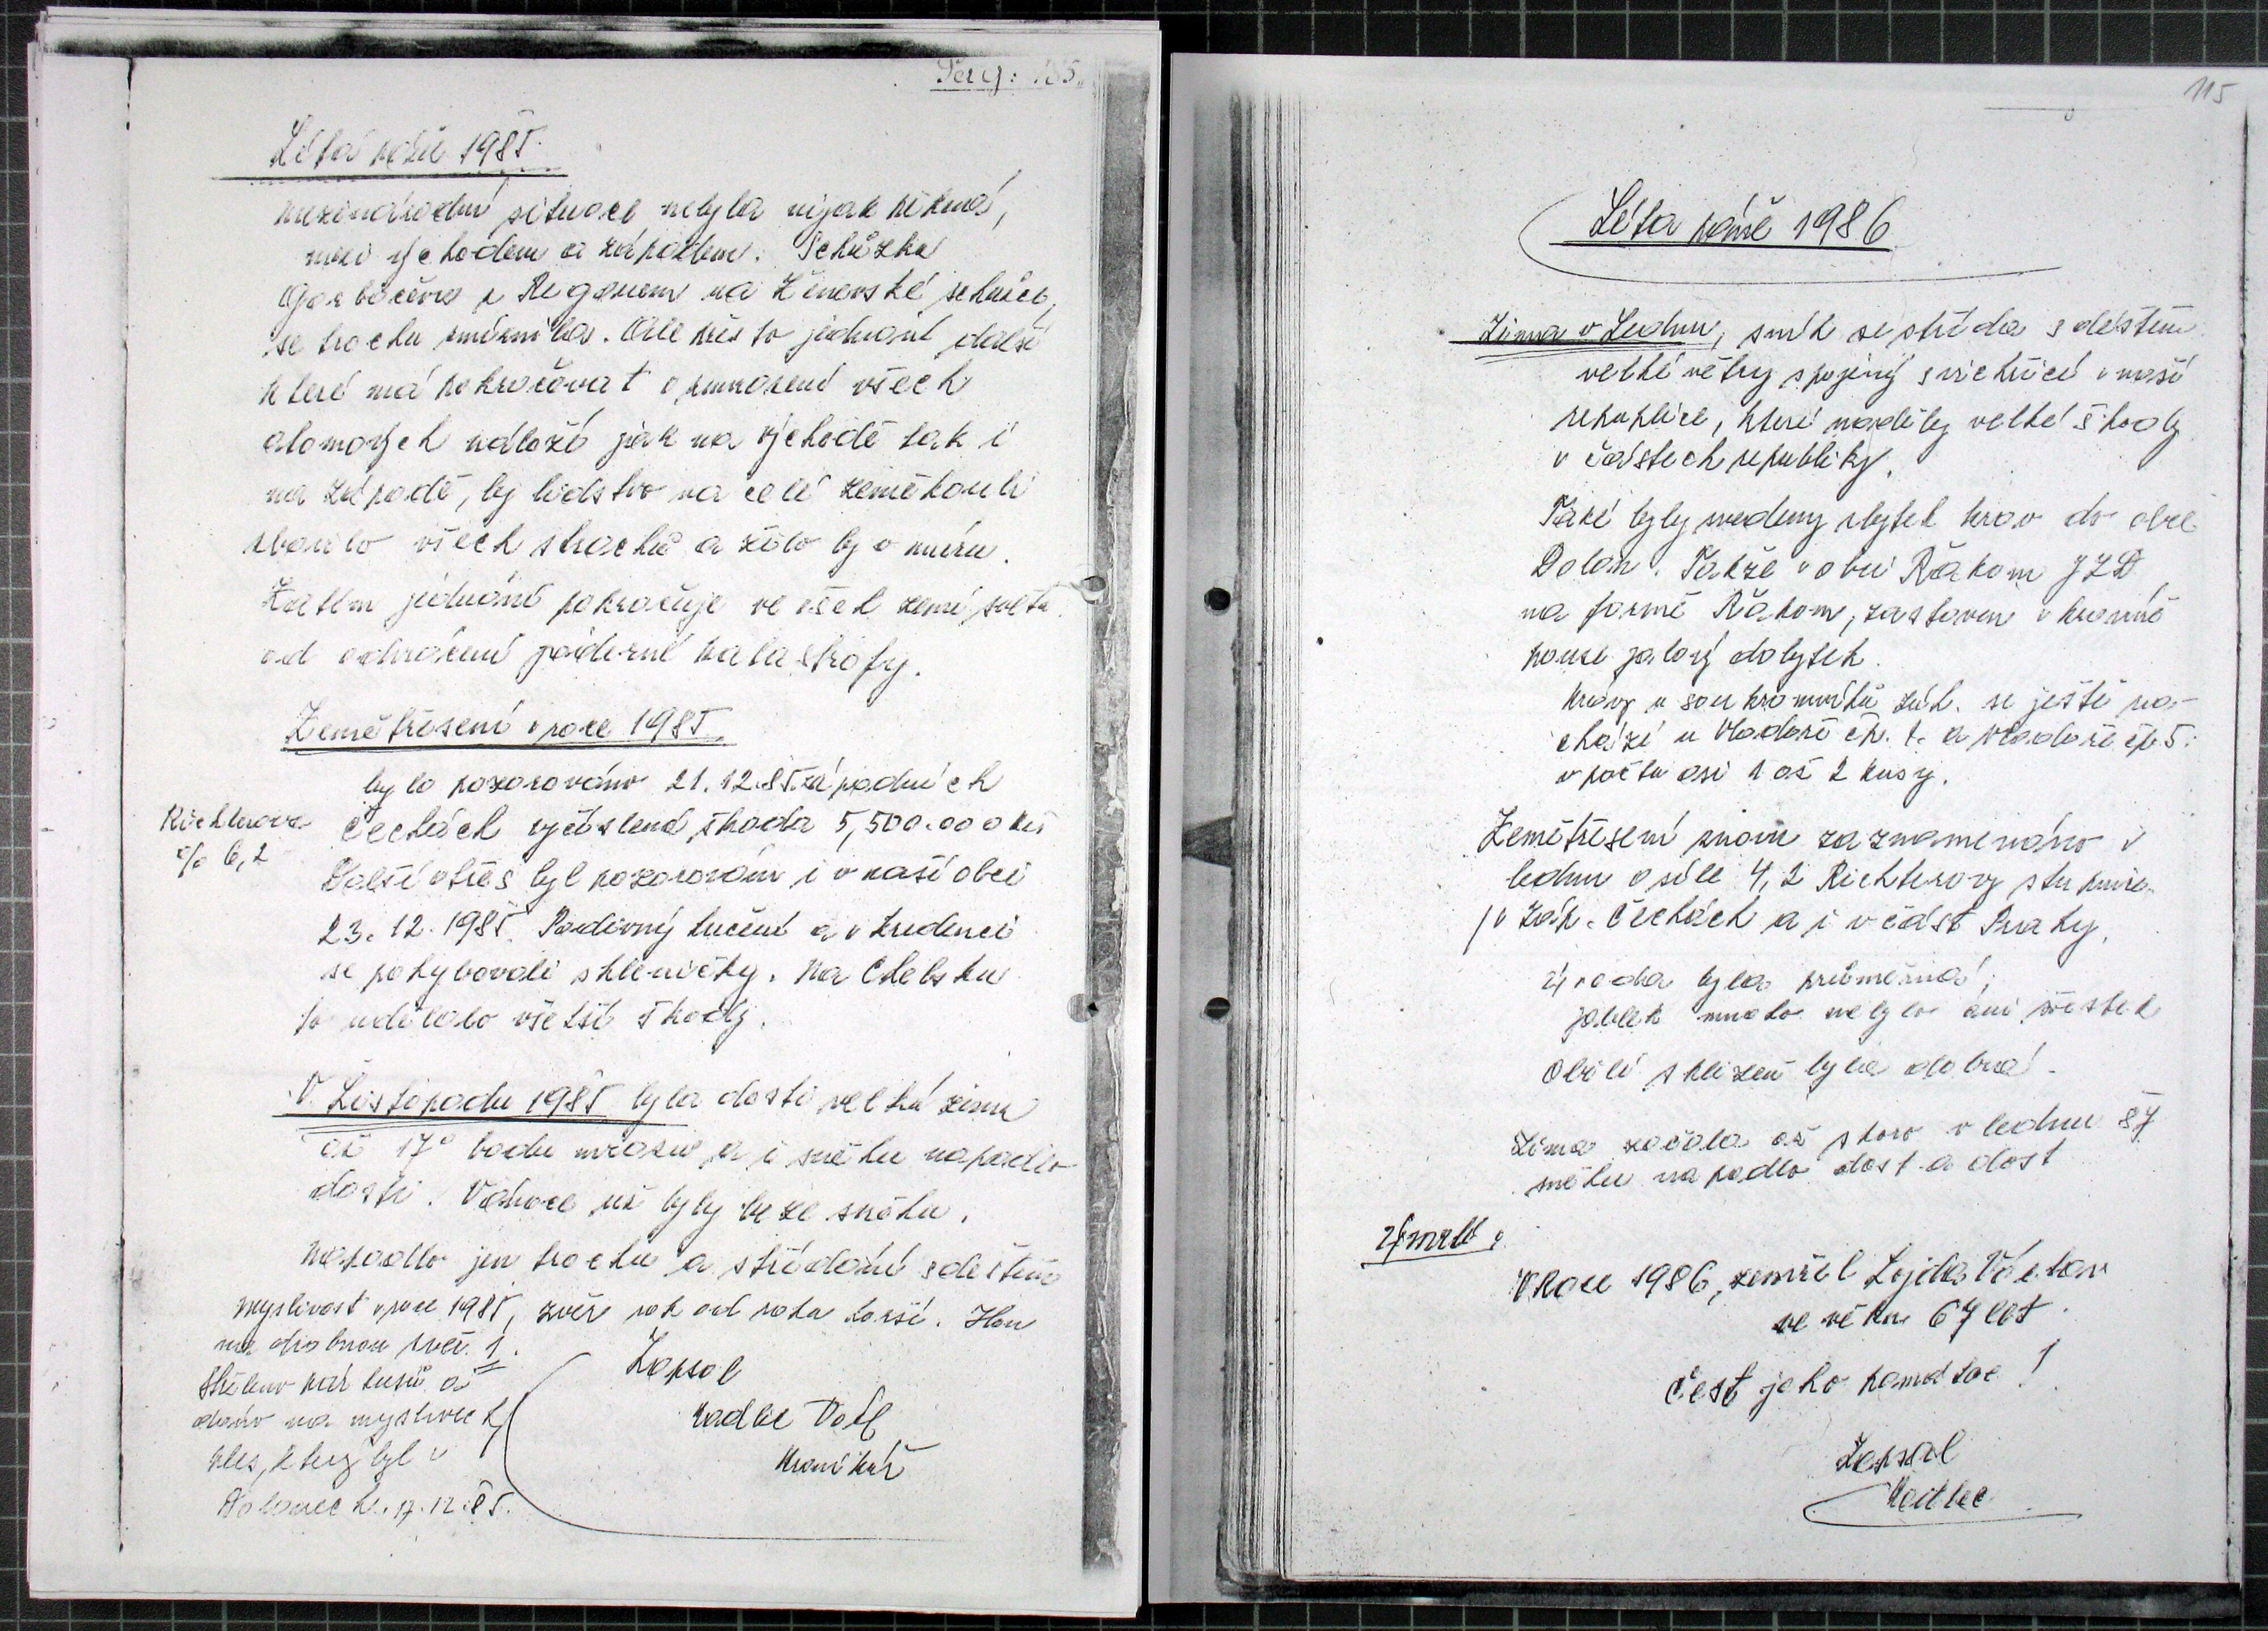 Pag: 185.
Léta páně 1985.
mezinárodní situace nebyla nijak pěkná,
mezi východem a západem. Schůzka
Gorbočěva s Regonem na Ženevské schůzce,
se trochu zmírnila. Ale přes to jednání další
které má pokračovat o zmrazení všech
atomových náloží jak na východě tak i
na západě, by lidstvo na celé zeměkouli
zbavilo všech strachů a žilo by v míru.
Zatím jednání pokračuje ve všech zemí světa
od odvrácení jaderné katastrofy.
Zemětřesení v roce 1985
bylo pozorováno 21.12.85. západních
Richterova
Čechách vyčíslená škoda 5,500.000 Kčs
% 6,2
Další otřes byl pozorován i v naší obci
23. 12. 1985. Podivný hučení a v kredenci
se pohybovali skleničky. Na Chebsku
to udělalo větší škody.
V. Listopadu 1985 byla dosti velká zima
až 17° bodu mrazu, a i sněhu napadlo
dosti. Vánoce už byly beze sněhu.
Napadlo jen trochu a střídání s deštěm
Myslivost v roce 1985, zvěř rok od roku horší. Hon
na drobnou zvěř 1.
Střeleno pár kusů a
dáno na myslivecký
ples, který byl v
Dolanech. 17.12.85.
Zapsal
Kronikář
115
Léta páně 1986
Zima v Lednu, sníh se střídá s deštěm
velké větry spojený s vichřicí v naší
republice, které nadělily velké škody
v částech republiky.
Také byly svedeny zbytek krav do obce
Dolan. Takže v obci Řakom JZD,
na farmě Řakom, zastaven v kravíně
pouze jalový dobytek.
Krávy u soukromníků zák. se ještě na-
chází u Vladaře čp. 1. a Vladaře čp 5.
v počtu asi 1 až 2 kusy.
Zemětřesení znovu zaznamenáno v
lednu o síle 4,2 Richterovy stupnice
/v Záp. Čechách a i v část Prahy.
Úroda byla průměrná;
jablek mnoho nebylo ani švestek
Obilí sklizeň byla dobrá.
Zima začala až skoro v lednu 87
sněhu napadlo dost a dost
Úmrtí:
V Roce 1986, zemřel Lojda Václav
ve věku 67 let.
Čest jeho památce!
Zapsal